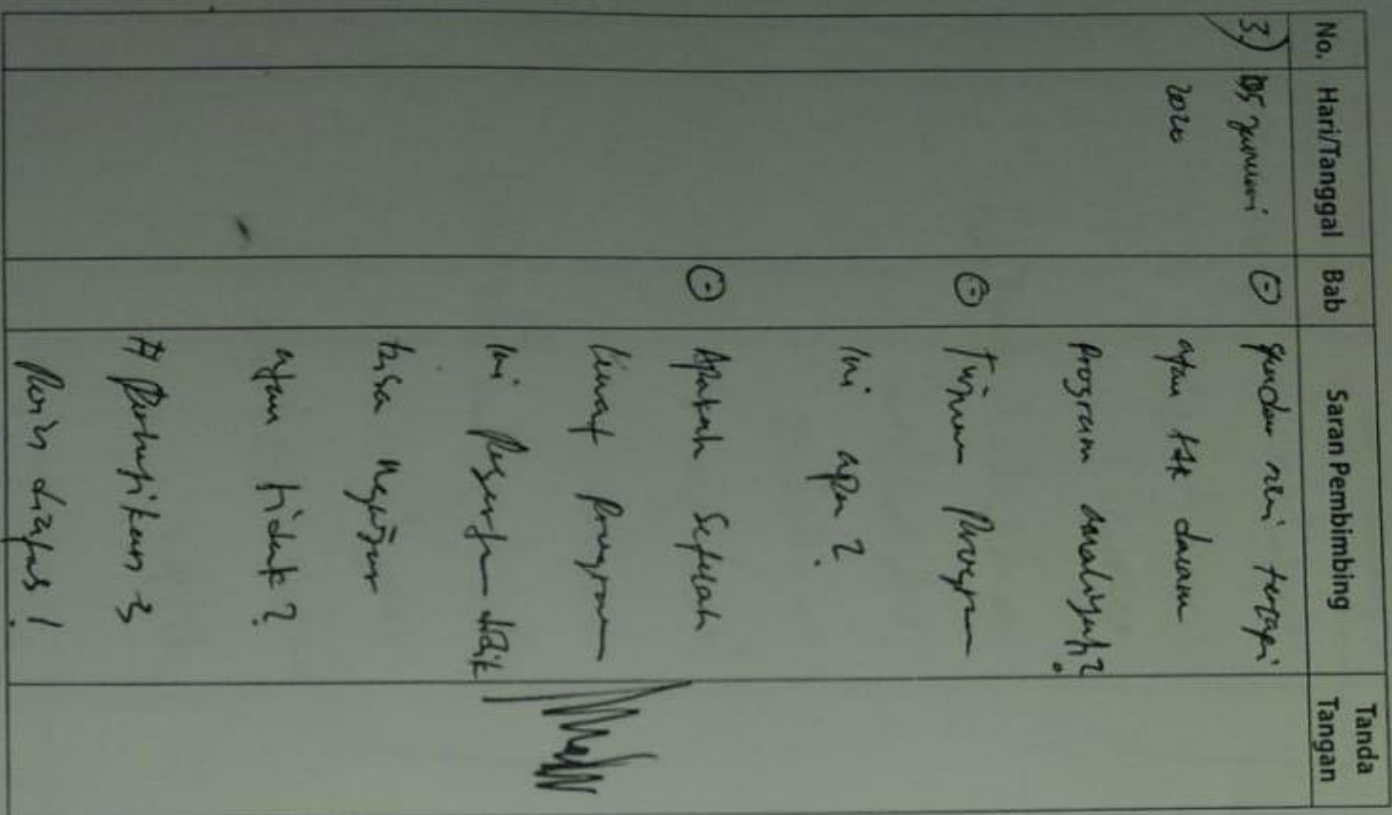 No. Hari/Tanggal Bab Saran Pembimbing Tanda Tangan
3.) 05 Januari
2020
atau tdk dalam
Program amaliyah?
Tujuan Program
ini apa?
Apakah Setelah
lewat Program
ini Peserta didik
bisa
atau tidak?
# Perhatikan 3
Poin diatas!